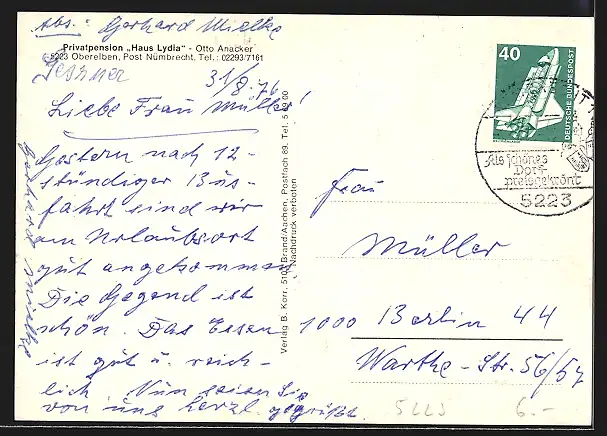 Abs.: Gerhard Mielke
Privatpension „Haus Lydia" - Otto Anacker
5223 Oberelben, Post Nümbrecht, Tel.: 02293/7161
31/8.76
Liebe Frau Müller!
Gestern nach 12-
stündiger Bus-
fahrt sind wir
am Urlaubsort
gut angekommen
Die Gegend ist
schön. Das Essen
ist gut u. reich-
lich. Nun seien Sie
von uns herzl. gegrüßt.
Gerhard Mielke
Verlag B. Korr, 5100 Brand/Aachen, Postfach 89, Tel. 5
Nachdruck verboten
40
DEUTSCHE BUNDESPOST
Als schönes
Dorf
preisgekrönt
5223
Frau
Müller
1000 Berlin 44
Warthe-Str. 56/57
5223
6.-